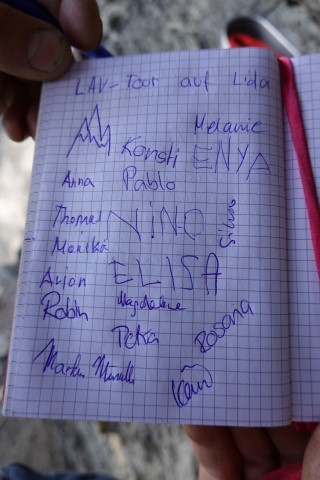 LAV-Tour auf Lida
Melanie
Konsti ENYA
Anna Pablo
Thomas NINO Silvan
Monika
Arion ELISA
Robin Magdalena
Petra Rosana
Markus